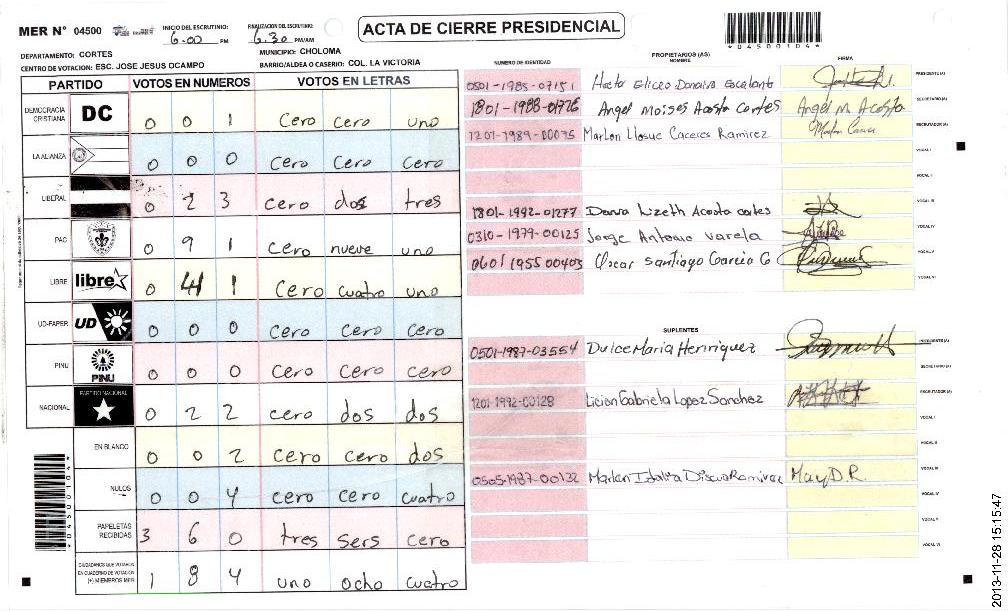 MER N° 04500
INICIO DEL ESCRUTINIO: 6:00 PM
FINALIZACION DEL ESCRUTINIO: 6:30 PM/AM
ACTA DE CIERRE PRESIDENCIAL
*04500104*
DEPARTAMENTO: CORTES
MUNICIPIO: CHOLOMA
CENTRO DE VOTACION: ESC. JOSE JESUS OCAMPO
BARRIO/ALDEA O CASERIO: COL. LA VICTORIA
PARTIDO VOTOS EN NUMEROS VOTOS EN LETRAS
DEMOCRACIA CRISTIANA DC 0 0 1 Cero cero uno
LA ALIANZA 0 0 0 Cero Cero Cero
LIBERAL 0 2 3 cero dos tres
PAC 0 9 1 Cero nueve uno
LIBRE libre 0 4 1 Cero cuatro uno
UD-FAPER UD 0 0 0 Cero Cero Cero
PINU PINU 0 0 0 Cero Cero cero
NACIONAL PARTIDO NACIONAL 0 2 2 cero dos dos
EN BLANCO 0 0 2 Cero Cero dos
NULOS 0 0 4 Cero cero cuatro
PAPELETAS RECIBIDAS 3 6 0 tres seis cero
CIUDADANOS QUE VOTARON EN CUADERNO DE VOTACION (+) MIEMBROS MER 1 8 4 uno ocho cuatro
*04500104*
NUMERO DE IDENTIDAD
PROPIETARIOS (AS)
NOMBRE
FIRMA
0501-1985-07151 Hector Eliceo Donaira Escalante PRESIDENTE (A)
1801-1988-01776 Angel Moises Acosta Cortes Angel M Acosta SECRETARIO (A)
1201-1989-00075 Marlon Josue Caceres Ramirez ESCRUTADOR (A)
VOCAL I
VOCAL II
1801-1992-01277 Danna Lizeth Acosta cortes VOCAL III
0310-1979-00125 Jorge Antonio Varela VOCAL IV
0601 1955 00403 Oscar Santiago Garcia G VOCAL V
VOCAL VI
SUPLENTES
0501-1987-03554 Dulce Maria Henriquez PRESIDENTE (A)
SECRETARIO (A)
1201-1992-00128 Lician Gabriela Lopez Sanchez ESCRUTADOR (A)
VOCAL I
VOCAL II
0505-1987-00132 Marlen Idalita Discua Ramirez May D.R. VOCAL III
VOCAL IV
VOCAL V
VOCAL VI
2013-11-28 15:15:47